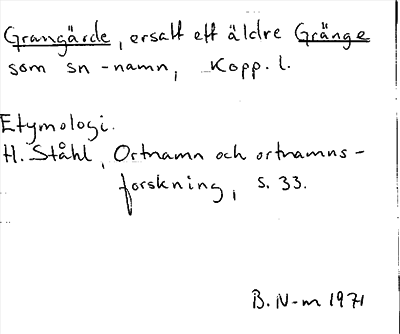 Grangärde, ersatt ett äldre Gränge
som sn-namn, Kopp. l.
Etymologi.
H. Ståhl, Ortnamn och ortnamns-
forskning, s. 33.
B. N-m 1971